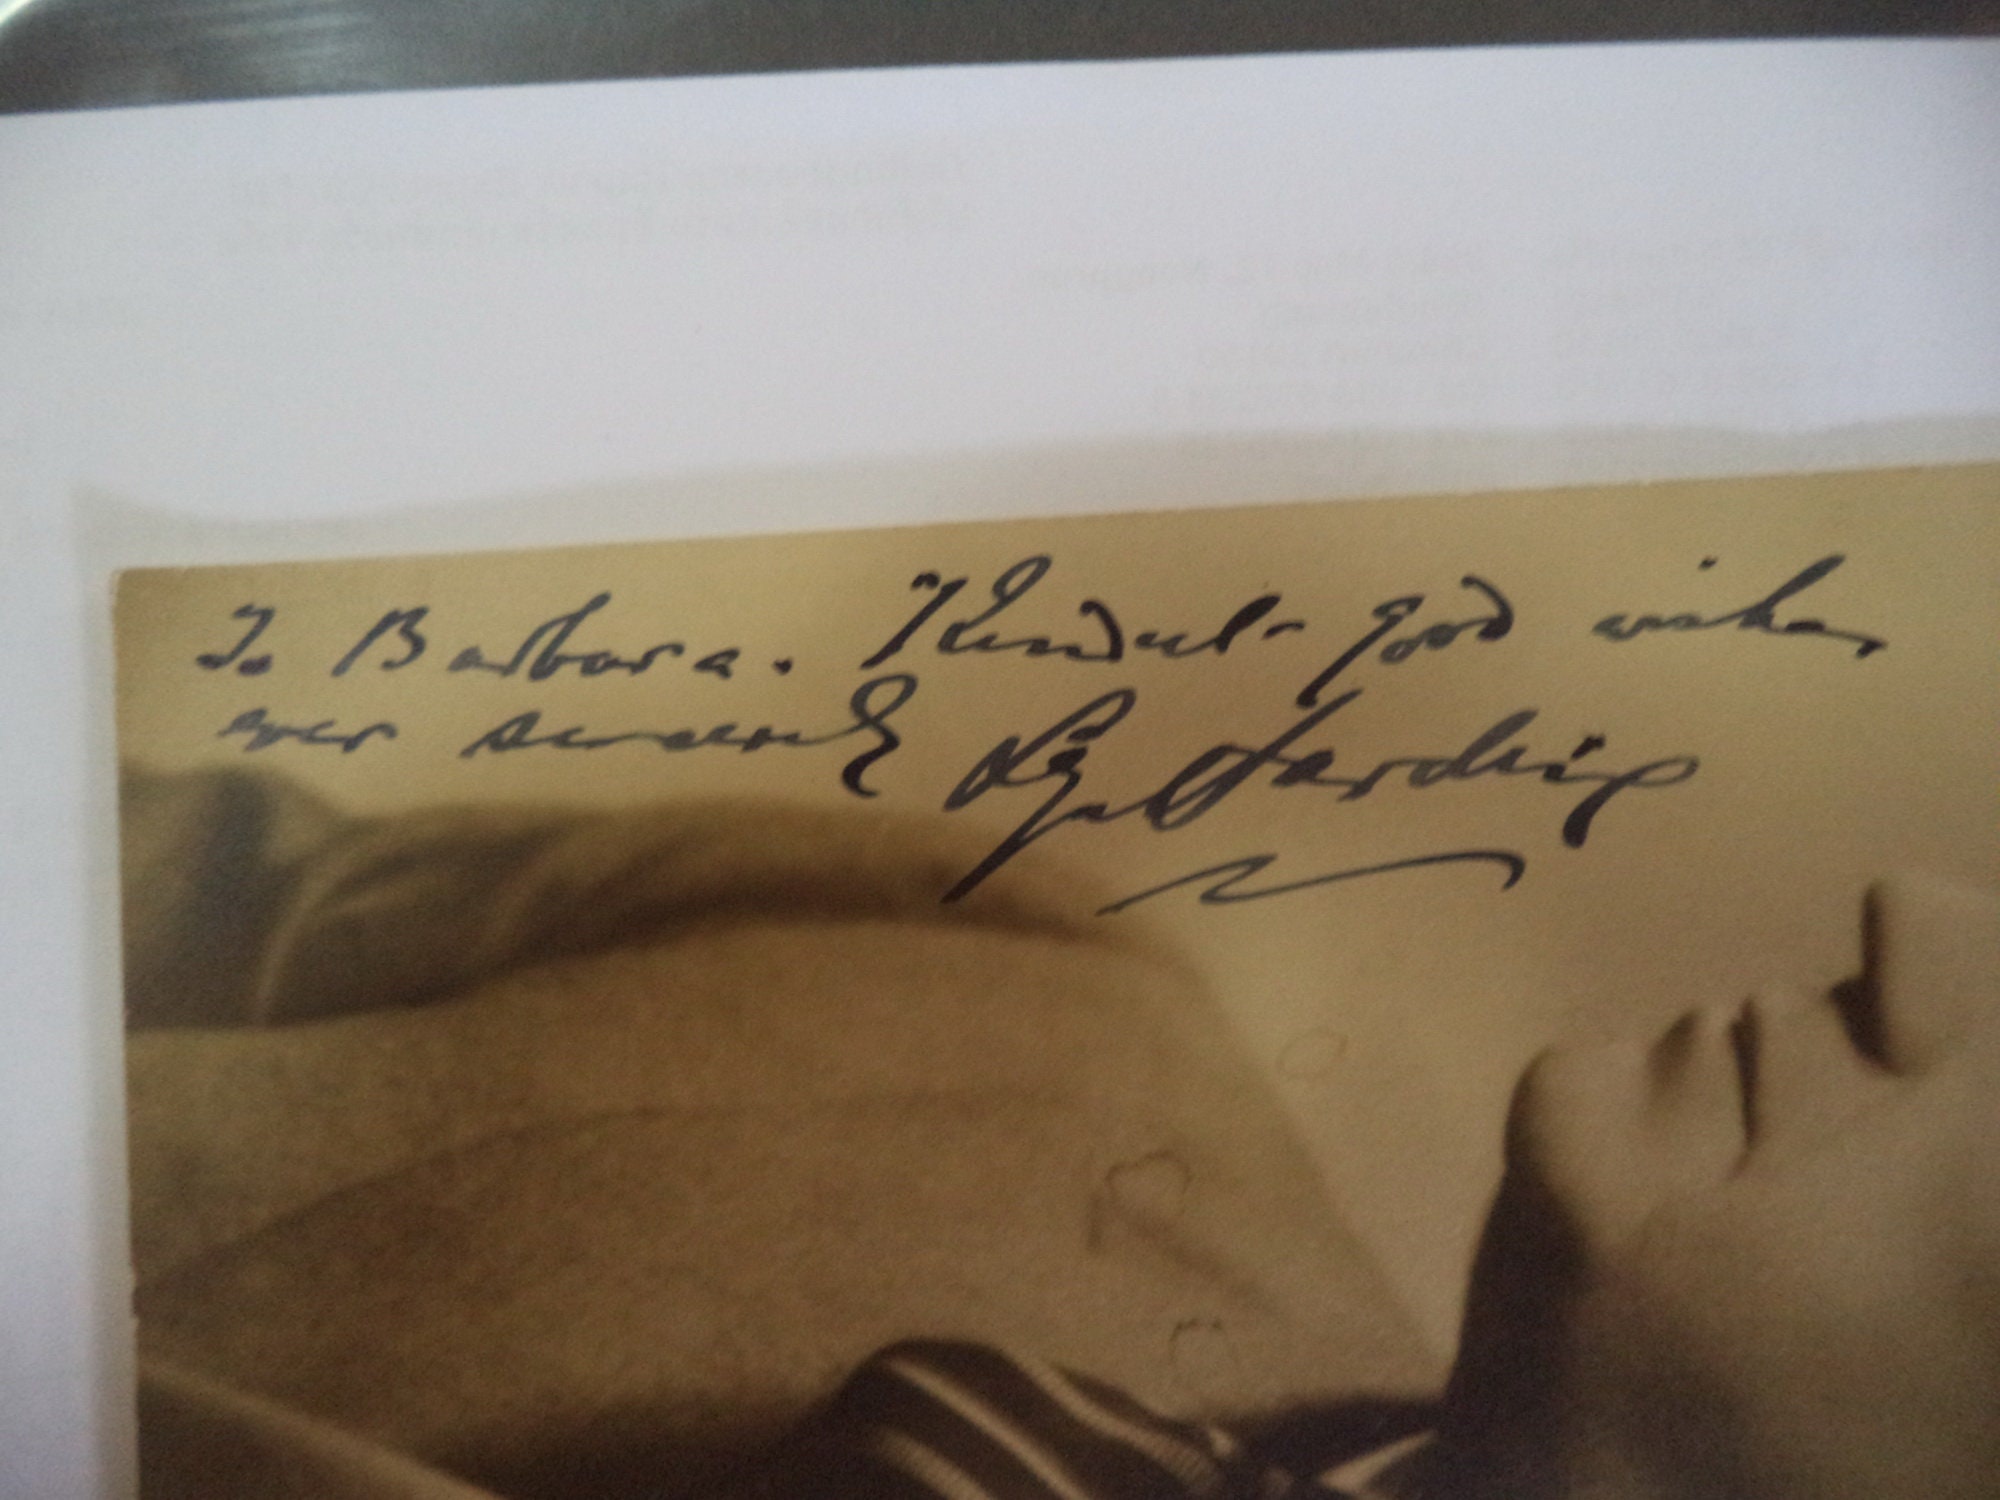 To Barbara. Kindest good wishes
ever sincerely Lyn Harding